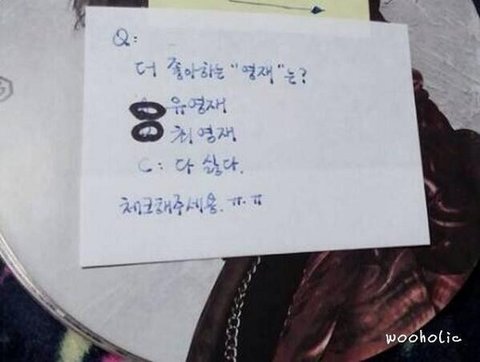 Q:
더 좋아하는 "영재"는?
유영재
최영재
C: 다 싫다.
체크해주세용.ㅠㅠ
wooholic